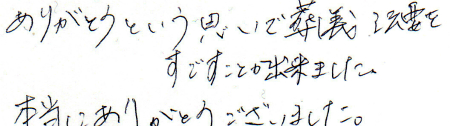 ありがとうという思いで葬儀 法要を
すごすことが出来ました。
本当にありがとうございました。